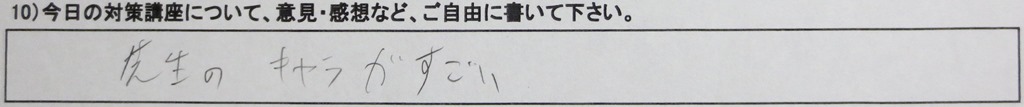 10)今日の対策講座について、意見・感想など、ご自由に書いて下さい。
先生の キャラがすごい